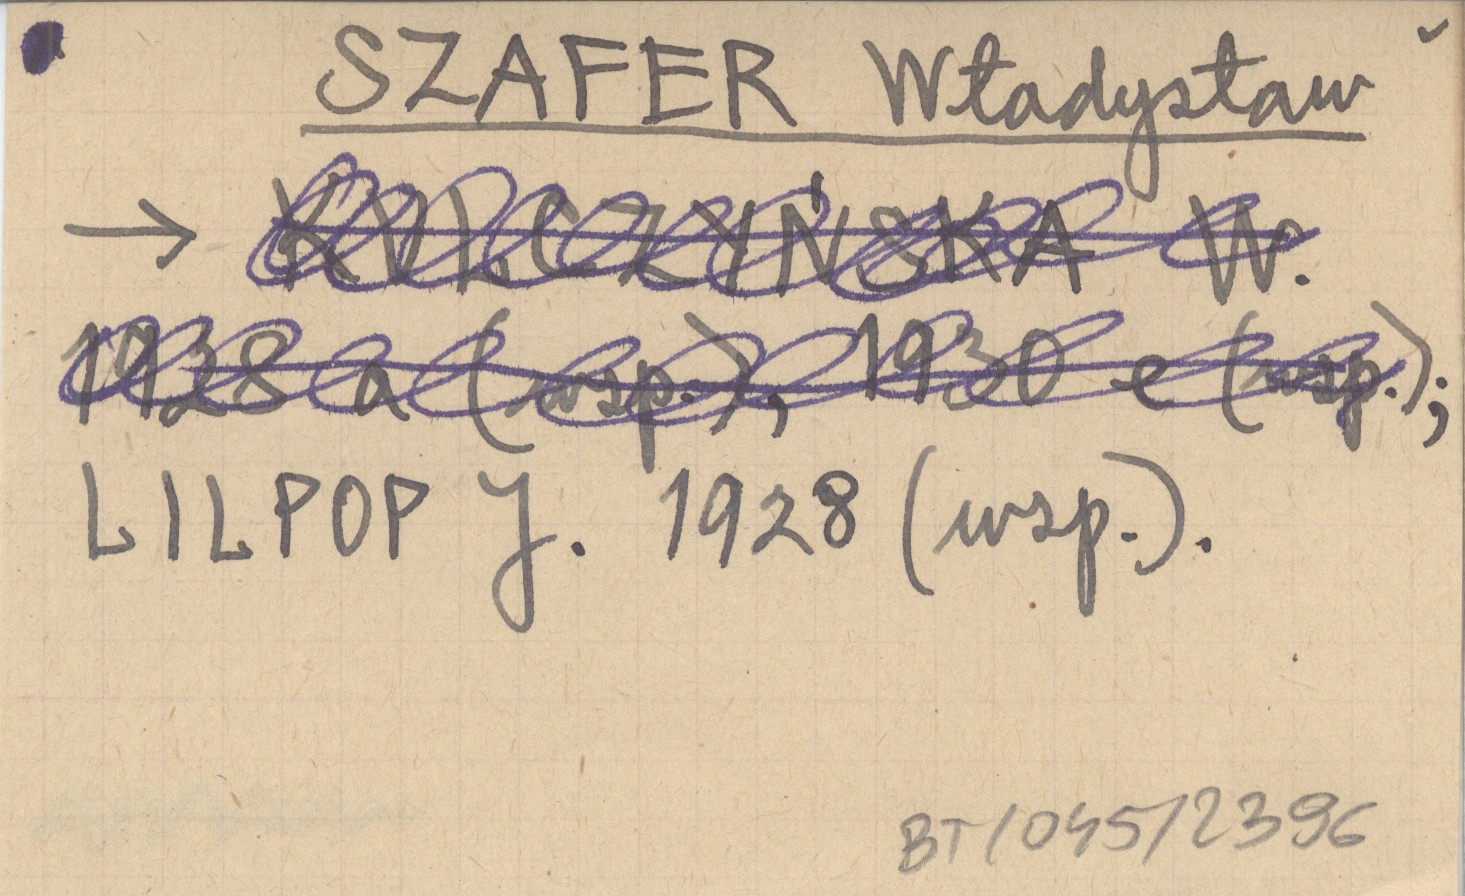 SZAFER Władysław
→ KULCZYŃSKA W.
1928 a (wsp.), 1930 e (wsp.);
LILPOP J. 1928 (wsp.).
BT/045/2396